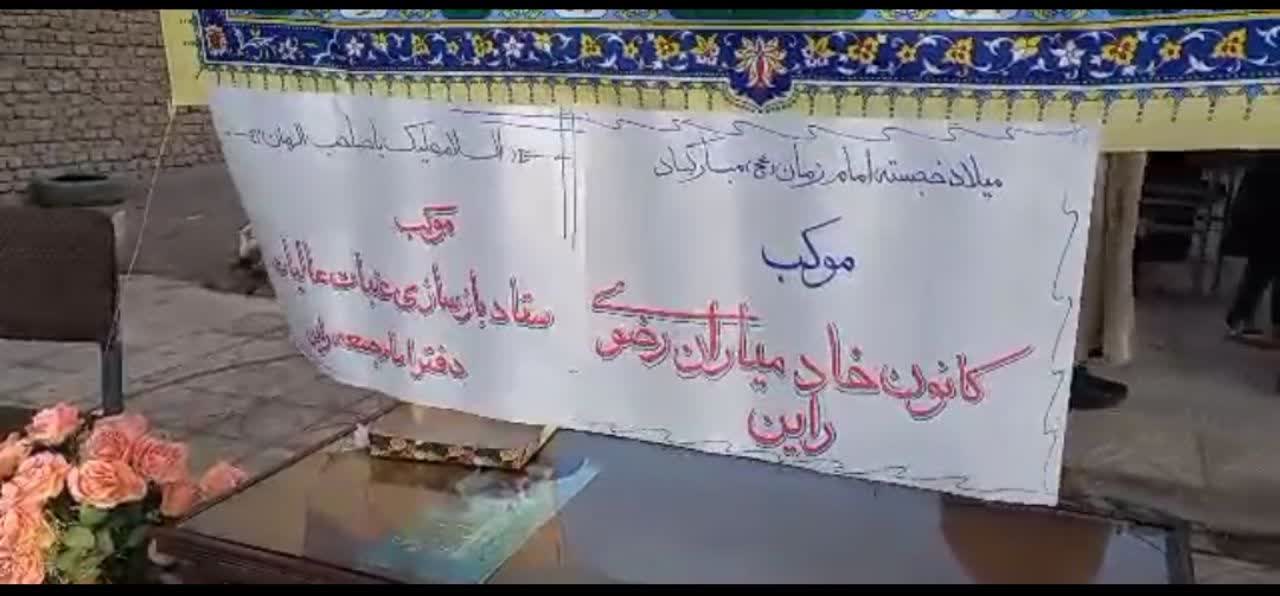 میلاد خجسته امام زمان (عج) مبارکباد
موکب
کانون خادمیاران رضوی
راین
السلام علیک یا صاحب الزمان
موکب
ستاد بازسازی عتبات عالیات
دفتر امام جمعه راین